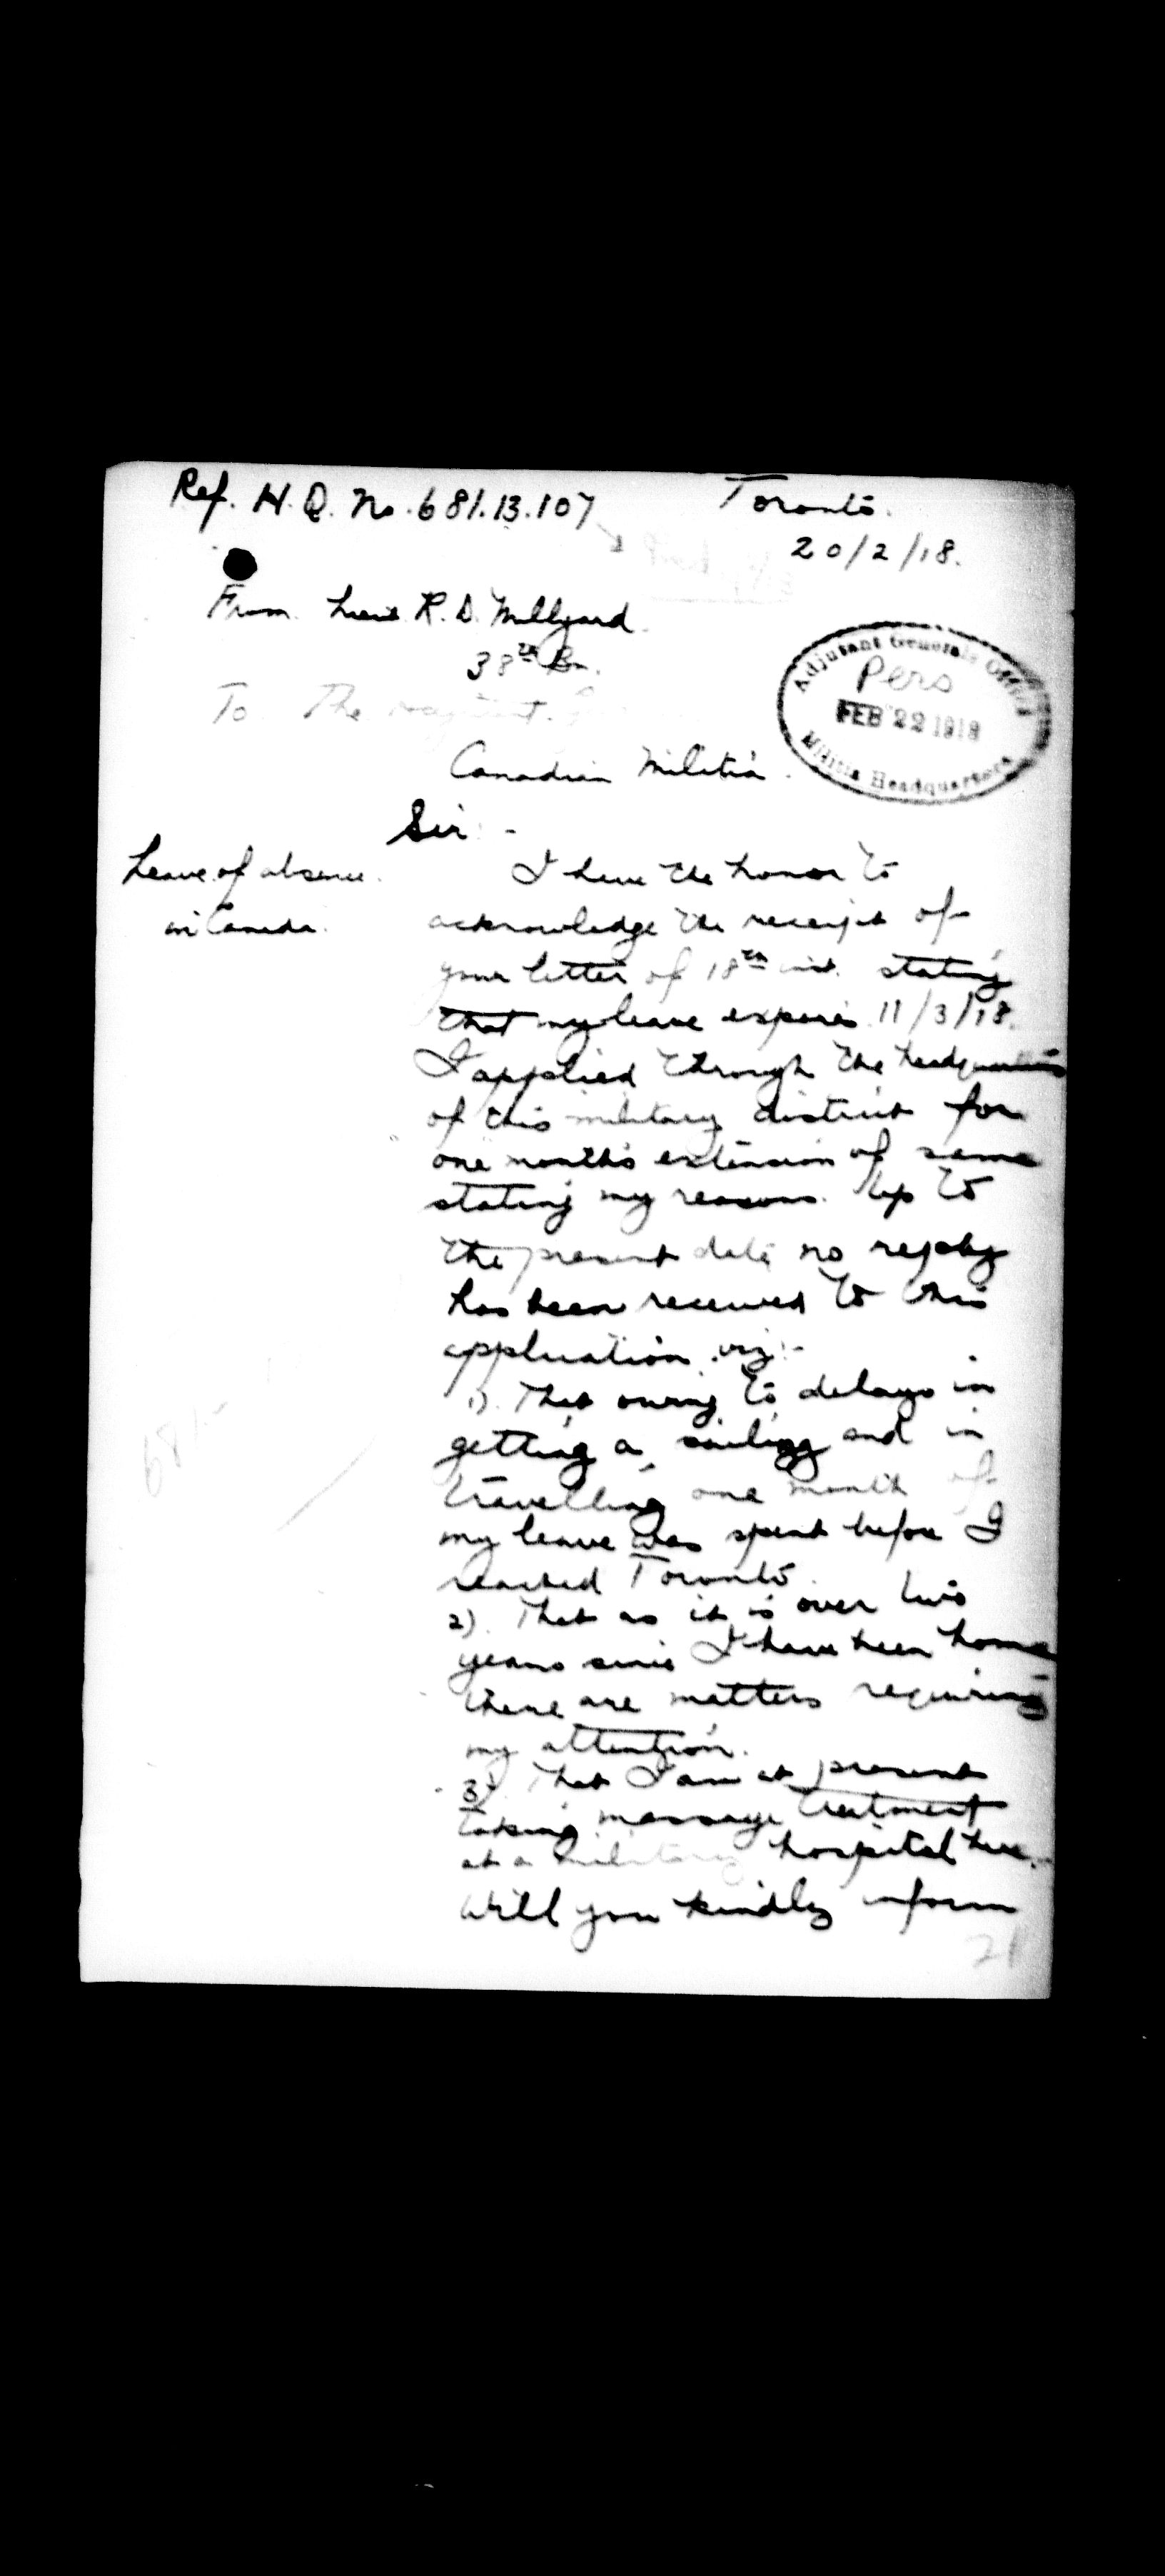 Ref. H.Q. No. 681.13.107
Toronto.
20/2/18.
From Lieut R. D. Millyard.
38th Bn.
To The
Canadian Militia.
Adjutant Generals Office
Pers
FEB 22 1918
Militia Headquarters
Sir:-
Leave of absence
in Canada.
I have the honor to
acknowledge the receipt of
your letter of 18th inst. stating
that my leave expires 11/3/18.
I applied through the headquarters
of this military district for
one months extension of same
stating my reasons. Up to
the present date no reply
has been received to this
application viz:-
1). That owing to delays in
getting a sailing and in
travelling one month of
my leave was spent before I
reached Toronto.
2). That as it is over two
years since I have been home
there are matters requiring
my attention.
3). That I am at present
taking massage treatment
at a military hospital here.
Will you kindly inform
21